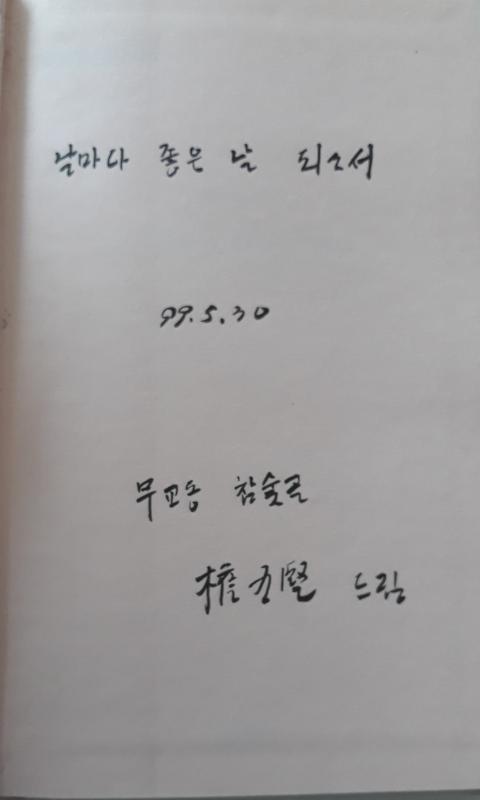 날마다 좋은 날 되소서
99.5.30
무교동 참숯골
權 賢 드림